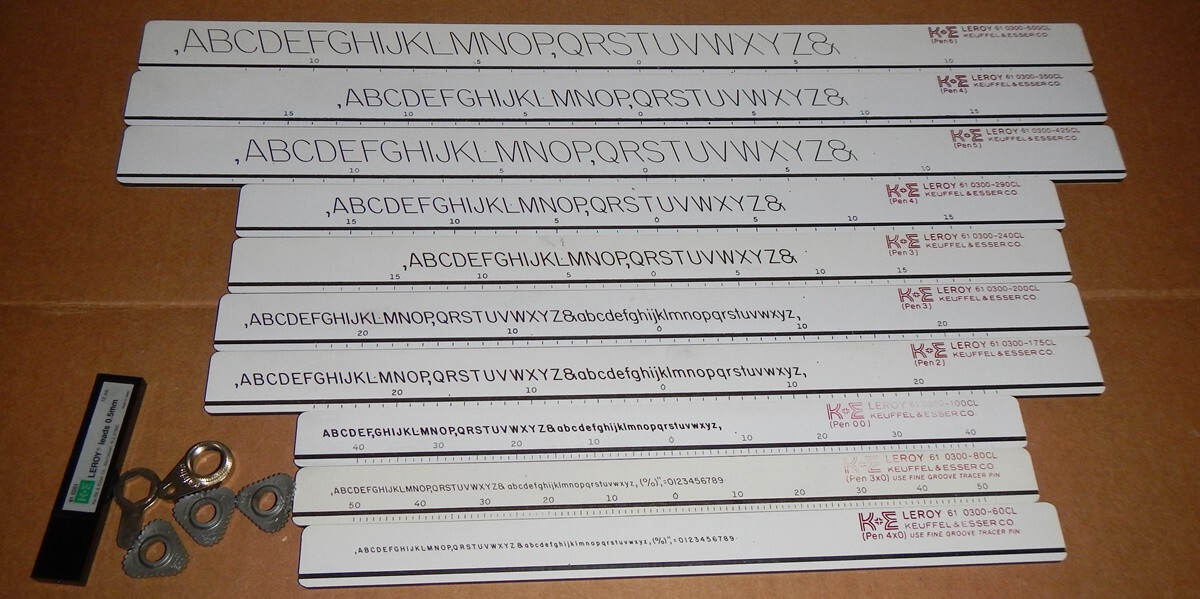 ,ABCDEFGHIJKL.MNOP,QRSTUVWXYZ&
K+E LEROY 61 0300-500CL
(Pen 6) KEUFFEL & ESSER CO.
10 5 0 5 10
,ABCDEFGHIJKL.MNOP,QRSTUVWXYZ&
K+E LEROY 61 0300-350CL
(Pen 4) KEUFFEL & ESSER CO.
15 10 5 0 5 10 15
,ABCDEFGHIJKL.MNOP,QRSTUVWXYZ&
K+E LEROY 61 0300-425CL
(Pen 5) KEUFFEL & ESSER CO.
10 5 0 5 10
,ABCDEFGHIJKL.MNOP,QRSTUVWXYZ&
K+E LEROY 61 0300-290CL
(Pen 4) KEUFFEL & ESSER CO.
15 10 5 0 5 10 15
,ABCDEFGHIJKL.MNOP,QRSTUVWXYZ&
K+E LEROY 61 0300-240CL
(Pen 3) KEUFFEL & ESSER CO.
15 10 5 0 5 10 15
,ABCDEFGHIJKL.MNOP,QRSTUVWXYZ&abcdefghijklmnopqrstuvwxyz,
K+E LEROY 61 0300-200CL
(Pen 3) KEUFFEL & ESSER CO.
20 10 0 10 20
,ABCDEFGHIJKL.MNOP,QRSTUVWXYZ&abcdefghijklmnopqrstuvwxyz,
K+E LEROY 61 0300-175CL
(Pen 2) KEUFFEL & ESSER CO.
20 10 0 10 20
ABCDEF,GHIJKL.MNOP,QRSTUVWXYZ&abcdefghijklmnopqrstuvwxyz,
K+E LEROY 61 0300-100CL
(Pen 00) KEUFFEL & ESSER CO.
40 30 20 10 0 10 20 30 40
,ABCDEFGHIJKL.MNOP,QRSTUVWXYZ&abcdefghijklmnopqrstuvwxyz,(%)",=0123456789
K+E LEROY 61 0300-80CL
KEUFFEL & ESSER CO.
(Pen 3x0) USE FINE GROOVE TRACER PIN
50 40 30 20 10 0 10 20 30 40 50
,ABCDEFGHIJKL.MNOP,QRSTUVWXYZ&abcdefghijklmnopqrstuvwxyz,(%)",=0123456789
K+E LEROY 61 0300-60CL
KEUFFEL & ESSER CO.
(Pen 4x0) USE FINE GROOVE TRACER PIN
K+E LEROY® leads 0.5mm